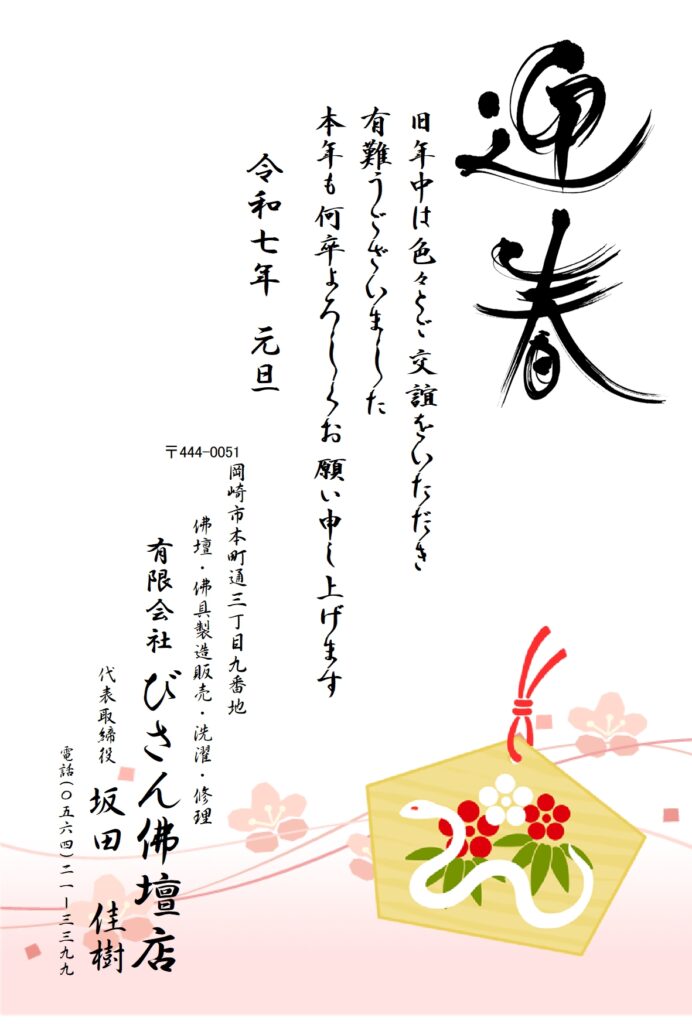 迎春
旧年中は色々とご交誼をいただき
有難うございました
本年も何卒よろしくお願い申し上げます
令和七年 元旦
〒444-0051
岡崎市本町通三丁目九番地
佛壇・佛具製造販売・洗濯・修理
有限会社 びさん佛壇店
代表取締役 坂田 佳樹
電話(〇五六四)二一ー三三九九